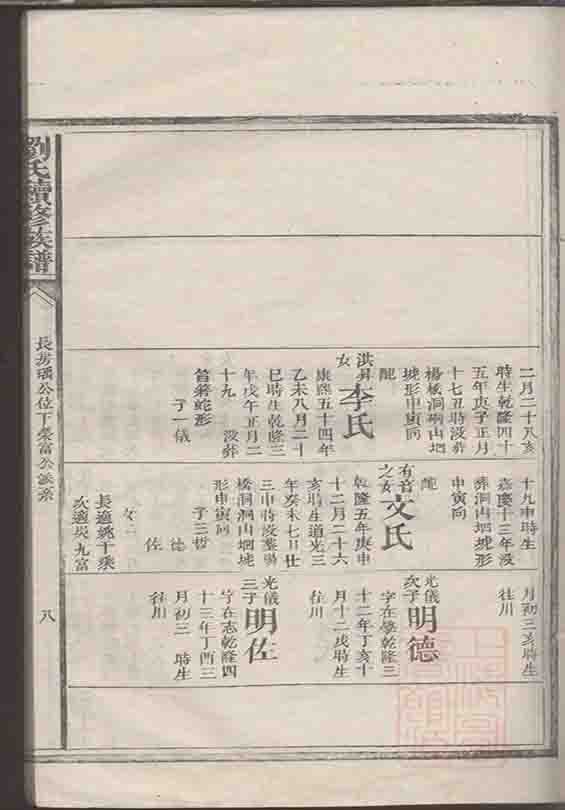 劉氏續修族譜
長房瑀公位下榮富公派系
八
二月二十八亥
時生乾隆四十
五年庚子正月
十七丑時沒葬
楊梘洞硐山坳
城形申寅向
配
洪昇女李氏
康熙五十四年
乙未八月二十
巳時生乾隆三
年戊午正月二
十九 沒葬
筲箕蛇形
子一儀
十九申時生
嘉慶十三年沒
葬洞山坳城形
申寅向
配
有音之女文氏
乾隆五年庚申
十二月二十六
亥時生道光三
年癸未七月廿
三申時沒葬楊
橋洞洞山坳城
形申寅向
子三哲
德
佐
女二
長適姚千乘
次適吳九富
月初三亥時生
往川
光儀次子明德
字在學乾隆三
十二年丁亥十
月十二戌時生
往川
光儀三子明佐
字在志乾隆四
十三年丁酉三
月初三 時生
往川